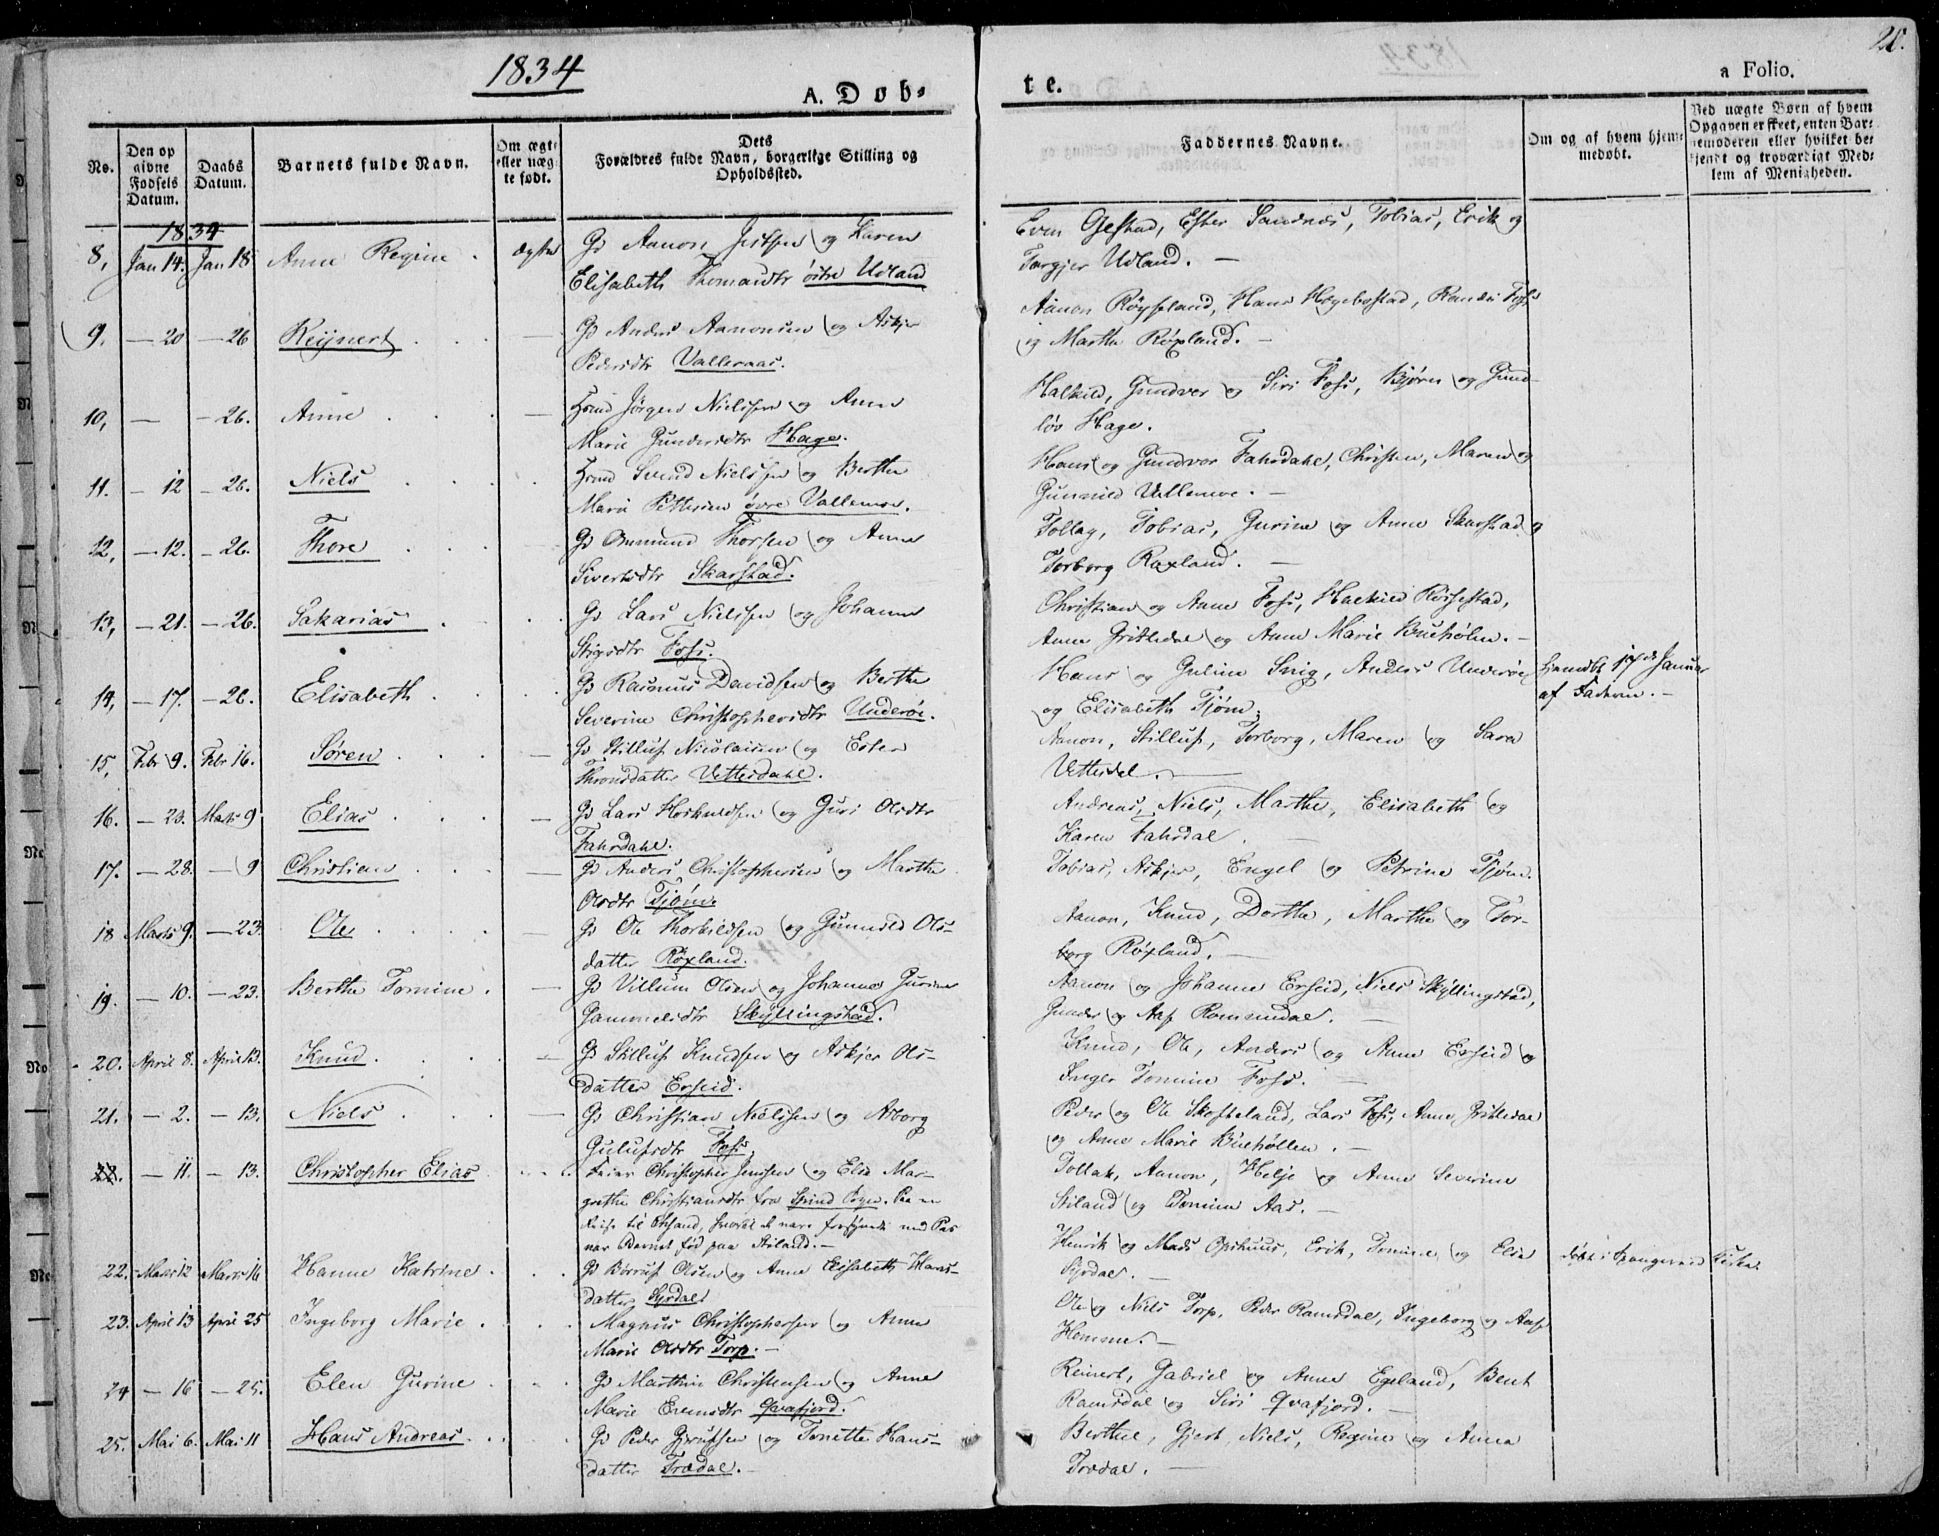 1834
A. Døb-
te.
a Folio.
No.
Den op
givne
Fødsels
Datum.
Daabs
Datum.
Barnets fulde Navn.
Om ægte
eller uæg-
te født.
Dets
Forældres fulde Navn, borgerlige Stilling og
Opholdssted.
Faddernes Navne.
Om og af hvem hjem-
medøbt.
Ved uægte Børn af hvem
Opgaven er skeet, enten Bar-
nemoderen eller hvilket be-
kjendt og troværdigt Med-
lem af Menigheden.
1834
8, Jan 14. Jan 18 Anne Regine . ægte Gd Aanon Jensen og Karen
Elisabeth Thomasdtr østre Udland
Even Gestad, Ester Sandnæs, Tobias, Erik og
Torgjer Udland. —
9. — 20 — 26 Reijnert . . — Gd Anders Aanonsen og Askjer
Pedersdtr Vallernas.
Aanon Røysland, Hans Hægebostad, Randi Foss
og Marthe Røxland. —
10, — - 26. Anne . . . — Hmd Jørgen Nielssen og Anne
Marie Gundersdtr Hage.
Halkild, Gundvor og Siri Foss, Bjørn og Gund-
løv Hage.
11. — 12 — 26. Niels . . . Hmd Svend Nielssen og Berthe
Marie Pettersen øvre Vallemoe.
Hans og Gundvor Fahrdahl, Christen, Maren og
Gunnild Vallemoe. —
12, — 12. — 26. Thore . . . Gd Omund Thorsen og Anne
Sivertsdtr Skarstad.
Tollag, Tobias, Gurine og Anne Skarstad og
Torborg Røxland. —
13, — 21. — 26. Sakarias . . . Gd Lars Nielssen og Johanne
Stigsdtr Foss.
Christian og Anne Foss, Halkild Røssestad,
Anne Gritledal og Anne Marie Buehølen. —
14, — 17. — 26. Elisabeth . . . Gd Rasmus Davidsen og Berthe
Severine Christophersdtr Underøe.
Hans og Guline Snig, Anders Underøe
og Elisabeth Tjøm.
Hjemdbt 17de Januar
af Faderen. —
15, Febr 9. Febr 16. Søren . . — Gd Stilluf Nicolaisen og Ester
Thronsdatter Vetterdahl.
Aanon, Stilluf, Torborg, Maren og Sara
Vetterdal. —
16. — 23. Marts 9 Elias . . . — Gd Lars Hoskuldsen og Guri Olsdtr
Fahrdahl.
Andreas, Niels, Marthe, Elisabeth og
Karen Fahrdal. —
17. — 28. — 9 Christian . . . — Gd Anders Christophersen og Marthe
Olsdtr Tjøm.
Tobias, Askjer, Engel og Petrine Tjøm.
18 Marts 9. — 23. Ole . . . . Gd Ole Thorkildsen og Gunnild Ols-
datter Røxland.
Aanon, Knud, Dorthe, Marthe og Tor-
borg Røxland. —
19. — 10. — 23. Berthe Tomine . — Gd Villum Olsen og Johanne Gurine
Gammelsdtr Skyllingstad.
Aanon og Johanne Erseid, Niels Skyllingstad,
Gunder og Aase Romundal. —
20. April 8. April 13. Knud . . . — Gd Stilluf Knudsen og Askjer Ols-
datter Erseid.
Knud, Ole, Anders og Anne Erseid og
Inger Tomine Foss. —
21. — 2. — 13. Niels . . . — Gd Christian Nielssen og Asborg
Gulufsdtr Foss.
Peder og Ole Skofteland, Lars Foss, Anne Gritledal
og Anne Marie Buehøllen. —
22. — 11. — 13. Christopher Elias . . . Christopher Jenssen og Else Mar-
grethe Christiansdtr fra Spind Sogn. Paa en
Reise til
var Barnet fød paa Stiland. —
Tollak, Aanon, Helje og Anne Severine
Stiland og Tomine Aas. —
22. Marts 12 Marts 16 Hanne Katrine . . . Gd Børruf Olsen og Anne Elisabeth Hans-
datter Syrdal.
Henrik og Mads Opshuus, Erik, Tomine og Elen
Syrdal. —
døbt i Spangereid Kirke.
23. April 13 April 25 Ingeborg Marie . . . Magnus Christophersen og Anne
Marie Olsdtr Torp. —
Ole og Niels Torp, Peder Ramsdal, Ingeborg og Aase
Homme. —
24 — 16 — 25. Elen Gurine . . . Gd Marthin Christensen og Anne
Marie Evensdtr Qvafjord.
Reinert, Gabriel og Anne Egeland, Bent
Ramsdal og Siri Qvafjord. —
25. Mai 6. Mai 11 Hans Andreas . . . Gd Peder Gjertsen og Tonette Hans-
datter Trædal. —
Berthe, Gjert, Niels, Regine og Anna
Trædal. —